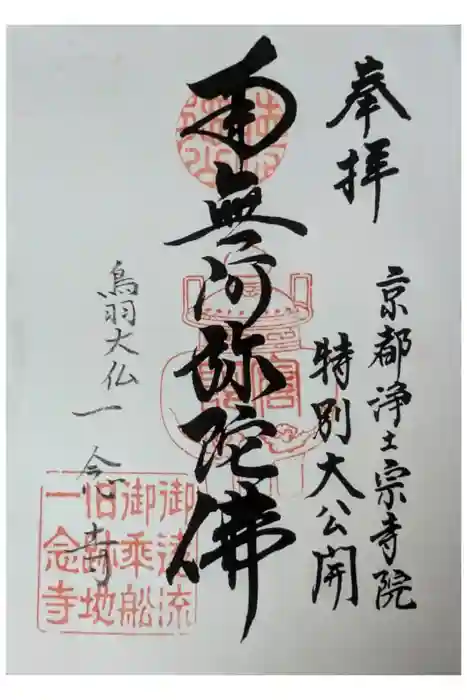 奉拝
京都浄土宗寺院
特別大公開
南無阿弥陀佛
鳥羽大仏一念寺
御遠流
御乗船
旧跡地
一念寺